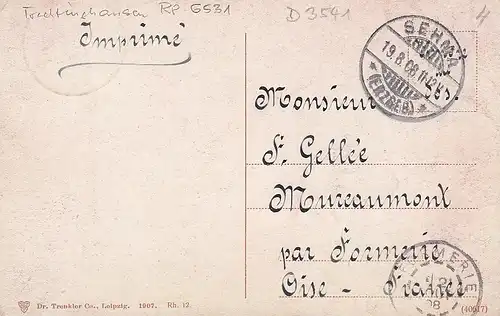 Trechtinghausen RP 6531
D 3541
4
Imprimé
SEHMA
19.8.08.11-12V.
* (ERZGEB.) *
Monsieur
St Gellée
Mureaumont
par Formerie
Oise - France
FORMERIE
08
Dr. Trenkler Co., Leipzig. 1907. Rh. 12.
(40617)